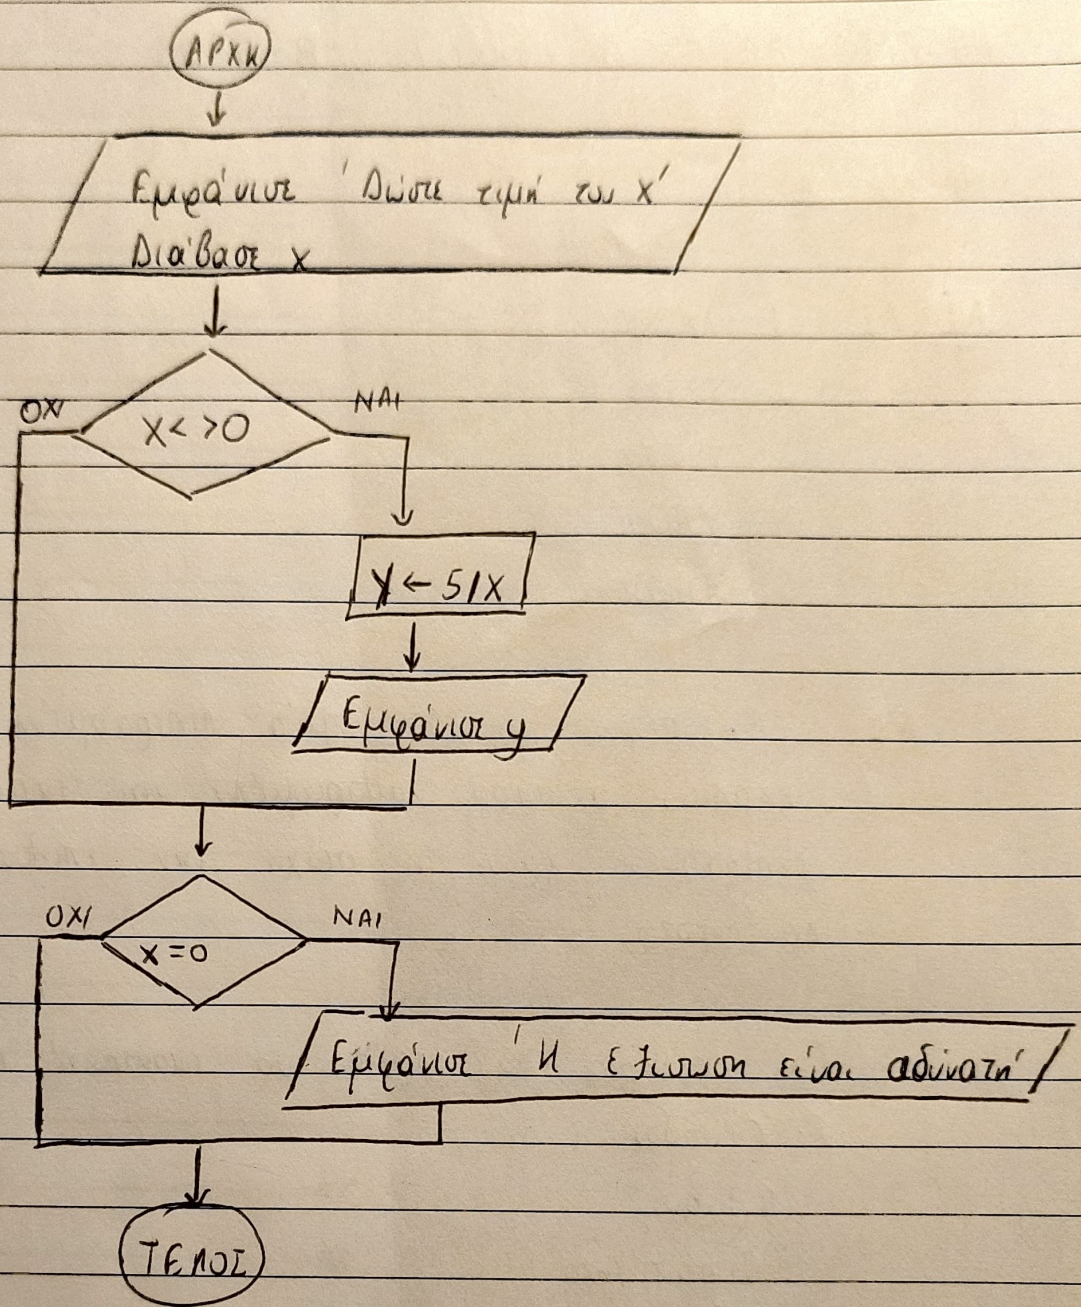 ΑΡΧΗ
Εμφάνισε 'Δώστε τιμή του Χ'
Διάβασε χ
ΟΧΙ
ΝΑΙ
Χ< >0
Υ ← 5/Χ
Εμφάνισε y
ΟΧΙ
ΝΑΙ
x=0
Εμφάνισε 'Η εξισωση είναι αδύνατη'
ΤΕΛΟΣ